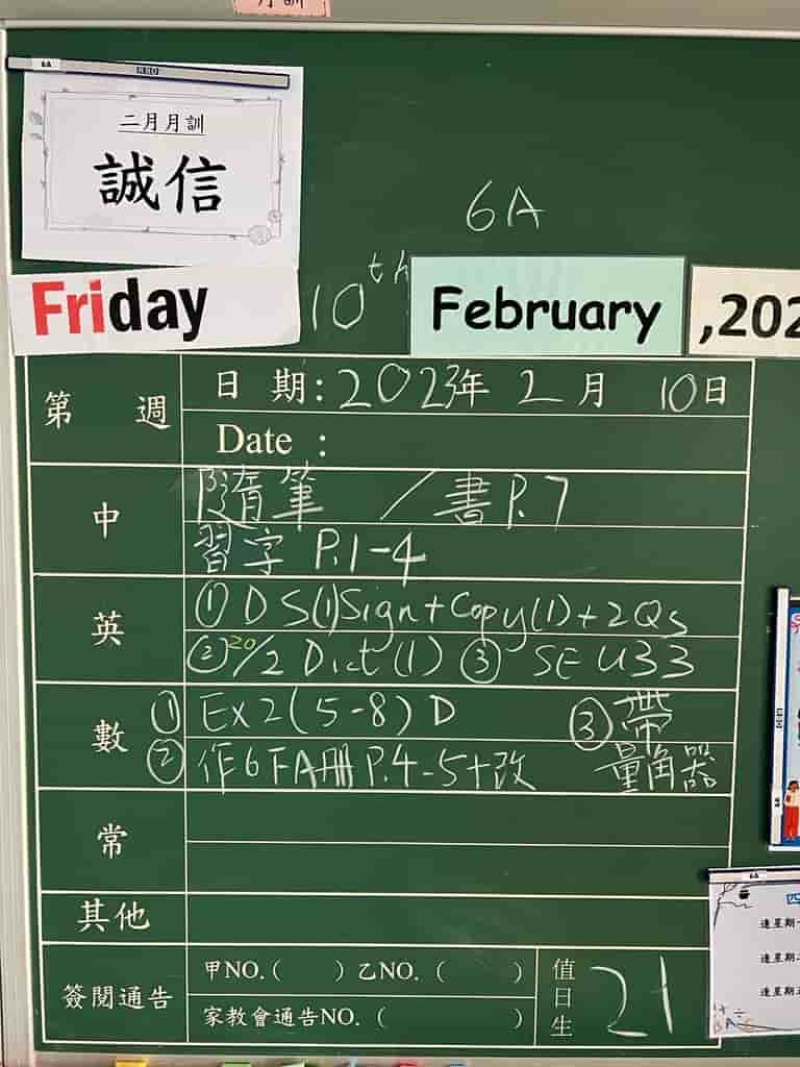 二月月訓
誠信
6A
Friday 10th February ,202
第 週 日 期:2023年 2月 10日
Date :
中 隨筆 / 書P.7
習字 P.1-4
英 ① D S(1)Sign+Copy(1)+2Qs
② 20/2 Dict(1) ③ SE U33
數 ① Ex2(5-8) D ③ 帶
② 作6FA冊P.4-5+改 量角器
常
其他
簽閱通告 甲NO.( ) 乙NO. ( )
家教會通告NO. ( )
值日生 21
逢星期
逢星期二
逢星期